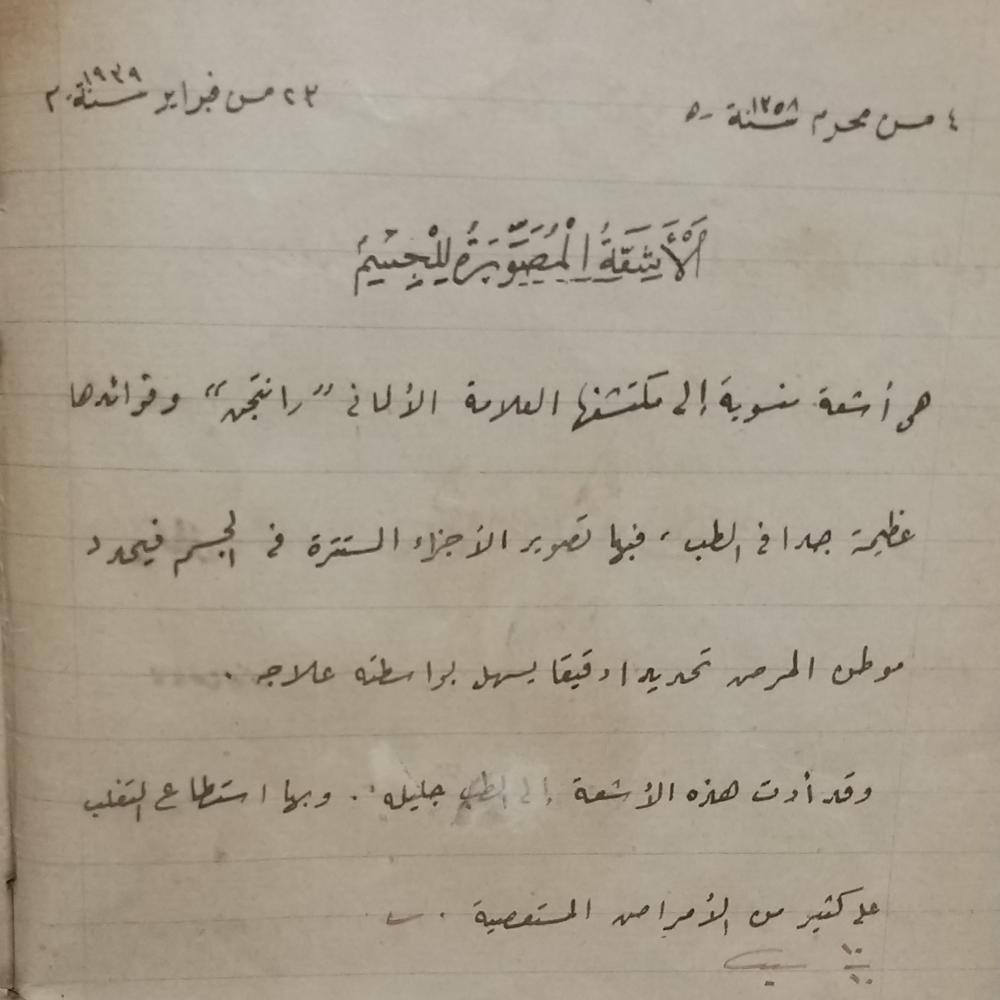 ٤ من محرم سنة ١٣٥٨ هـ
٢٣ من فبراير سنة ١٩٣٩ م
اَلْأَشِعَّةُ الْمُصَوِّرَةُ لِلْجِسْمِ
هى أشعة منسوبة إلى مكتشفها العلامة الألمانى "رانتجن" وفوائدها
عظيمة جدا فى الطب ، فبها تصوير الأجزاء المستترة فى الجسم فيحدد
موطن المرض تحديدا دقيقا يسهل بواسطته علاجه .
وقد أدت هذه الأشعة إلى الطب جليله . وبها استطاع التغلب
على كثير من الأمراض المستعصية .
١٠
١٠